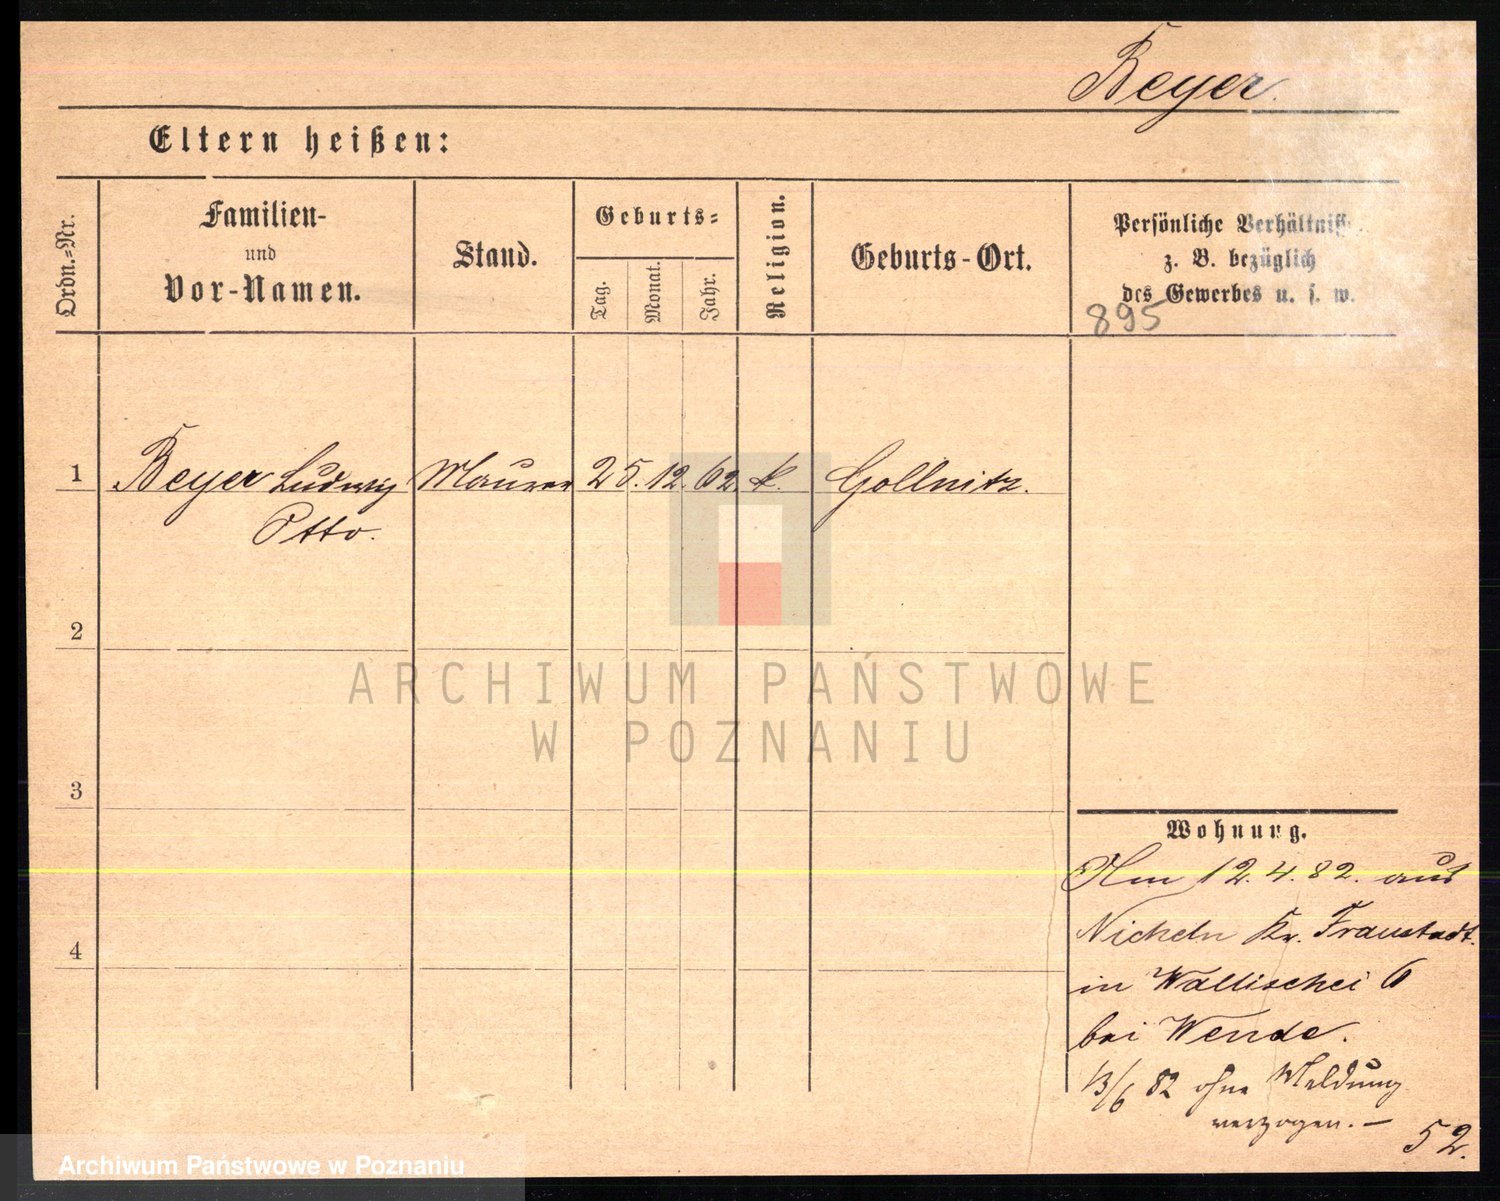 Beyer.
Eltern heißen:
Ordn.-Nr.
Familien-
und
Vor-Namen.
Stand.
Geburts-
Tag.
Monat.
Jahr.
Religion.
Geburts-Ort.
Persönliche Verhältniss
z. B. bezüglich
des Gewerbes u. s. w.
895
1 Beyer Ludwig Maurer 25. 12. 62. k. Gollnitz.
Otto.
2
3
4
Wohnung.
Am 12. 4. 82. aus
Nicheln Kr. Fraustadt.
in Wallischei 6
bei Wende.
13/6 82 ohne Meldung
verzogen. —
52.
ARCHIWUM PAŃSTWOWE
W POZNANIU
Archiwum Państwowe w Poznaniu